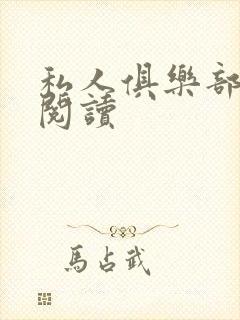 私人俱樂部
閱讀
馬占武